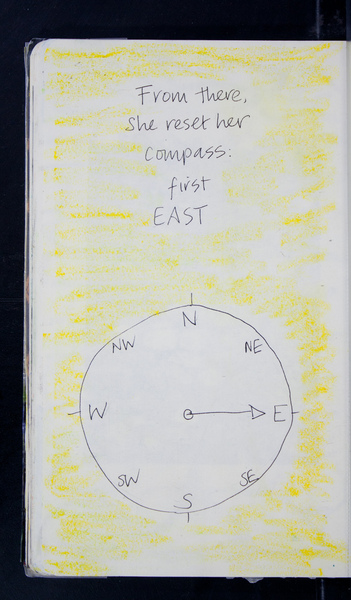 From there,
she reset her
compass:
first
EAST
N
NW NE
W E
SW SE
S